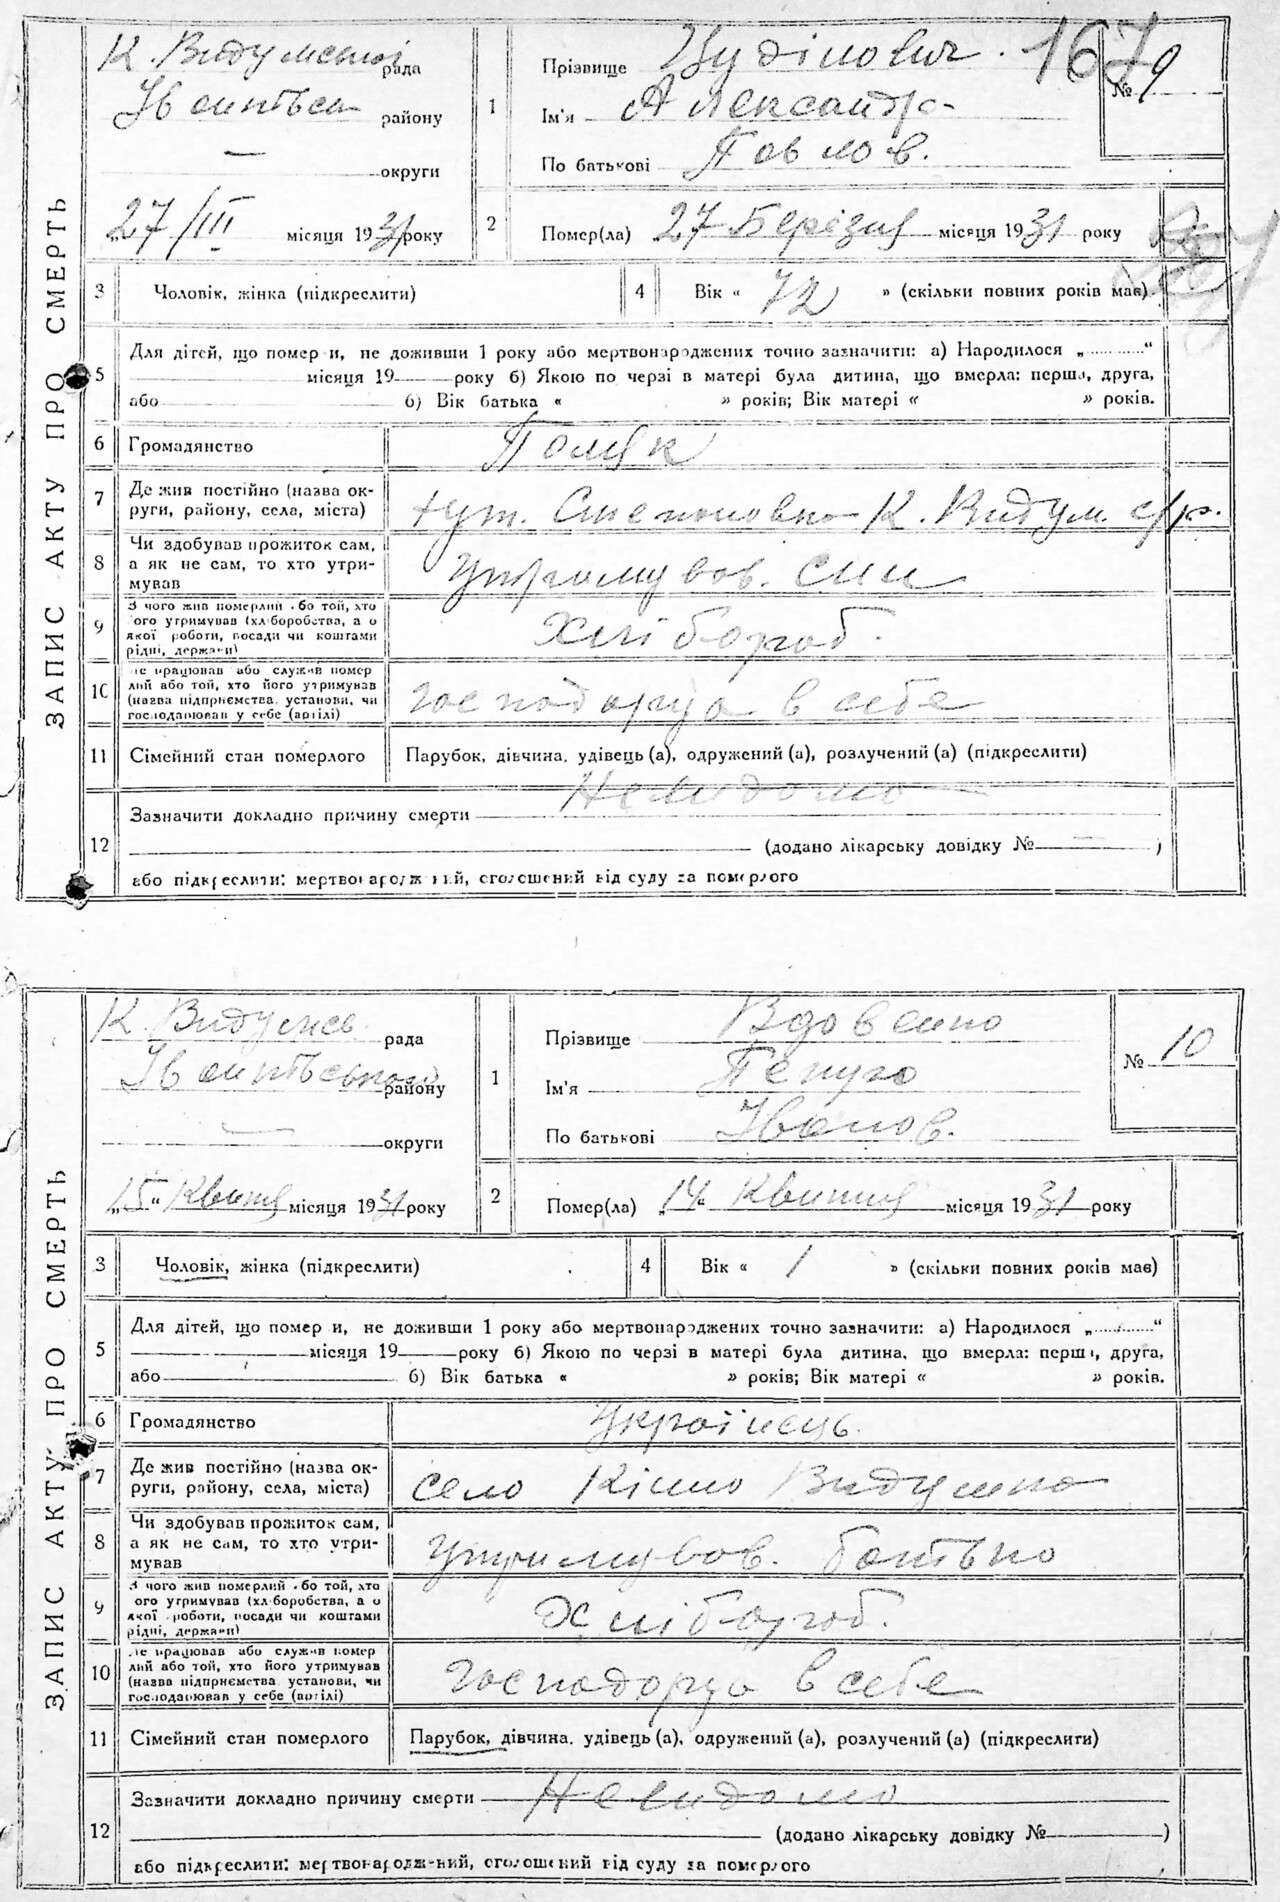 ЗАПИС АКТУ ПРО СМЕРТЬ
К. Видумської рада
району
— округи
„27/III місяця 1931 року
1
Прізвище Цуділович.
Ім'я Александр
По батькові Павлов.
167
№ 9
2
Помер(ла) 27 Берізня місяця 1931 року
3
Чоловік, жінка (підкреслити)
4
Вік « 72 » (скільки повних років має)
5
Для дітей, що померли, не доживши 1 року або мертвонароджених точно зазначити: а) Народилося „..........“
місяця 19 року б) Якою по черзі в матері була дитина, що вмерла: перша, друга,
або б) Вік батька « » років; Вік матері « » років.
6
Громадянство Поляк
7
Де жив постійно (назва округи, району, села, міста)
хут. Степановка К. Видум. с/р.
8
Чи здобував прожиток сам, а як не сам, то хто утримував
утримував. син
9
З чого жив померлий або той, хто його утримував (хліборобства, а о якої роботи, посади чи коштами рідні, держави)
Хлібороб.
10
Де працював або служив померлий або той, хто його утримував (назва підприємства, установи, чи господарював у себе (артілі)
господарця в себе
11
Сімейний стан померлого
Парубок, дівчина, удівець (а), одружений (а), розлучений (а) (підкреслити)
12
Зазначити докладно причину смерти Невидомо
(додано лікарську довідку № — )
або підкреслити: мертвонароджений, оголошений від суду за померлого
ЗАПИС АКТУ ПРО СМЕРТЬ
К. Видумсь. рада
району
— округи
„15“ Квитня місяця 1931 року
1
Прізвище Вдовенко
Ім'я
По батькові Іванов.
№ 10
2
Помер(ла) „14“ Квитня місяця 1931 року
3
Чоловік, жінка (підкреслити)
4
Вік « 1 » (скільки повних років має)
5
Для дітей, що померли, не доживши 1 року або мертвонароджених точно зазначити: а) Народилося „..........“
місяця 19 року б) Якою по черзі в матері була дитина, що вмерла: перша, друга,
або б) Вік батька « » років; Вік матері « » років.
6
Громадянство Українець.
7
Де жив постійно (назва округи, району, села, міста)
село Кішно Видумка
8
Чи здобував прожиток сам, а як не сам, то хто утримував
утримував. батько
9
З чого жив померлий або той, хто його утримував (хліборобства, а о якої роботи, посади чи коштами рідні, держави)
Хлібороб.
10
Де працював або служив померлий або той, хто його утримував (назва підприємства, установи, чи господарював у себе (артілі)
господарця в себе
11
Сімейний стан померлого
Парубок, дівчина, удівець (а), одружений (а), розлучений (а) (підкреслити)
12
Зазначити докладно причину смерти Невидомо
(додано лікарську довідку № )
або підкреслити: мертвонароджений, оголошений від суду за померлого